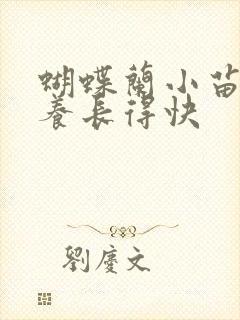 蝴蝶蘭小苗
養長得快
劉慶文